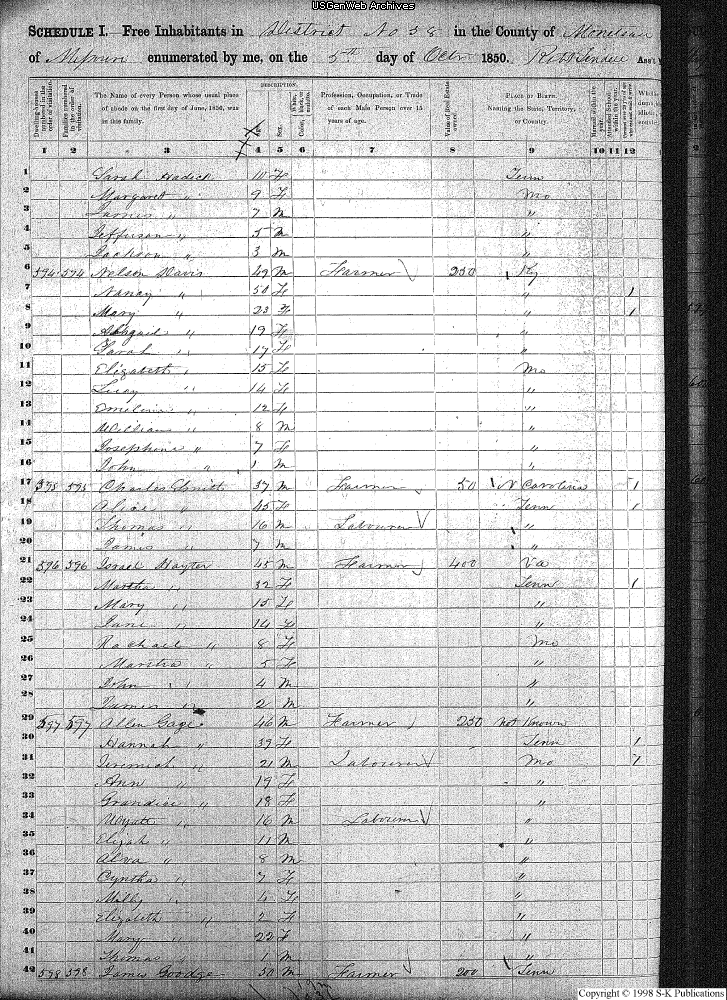 USGenWeb Archives
SCHEDULE I. Free Inhabitants in District No 58 in the County of
of enumerated by me, on the 5th day of Octr 1850. Ass't
DESCRIPTION.
Dwelling-houses numbered in the order of visitation.
Families numbered in the order of visitation.
The Name of every Person whose usual place of abode on the first day of June, 1850, was in this family.
Age.
Sex.
Color,
Profession, Occupation, or Trade of each Male Person over 15 years of age.
Value of Real Estate owned.
PLACE OF BIRTH. Naming the State, Territory, or Country
1 2 3 4 5 6 7 8 9 10 11 12
1 Sarah Hadick 10 F Tenn
2 Margaret " 9 F Mo
3 James " 7 M "
4 Jefferson " 5 M "
5 Jackson " 3 M "
6 594 594 Nelson Davis 49 M Farmer 250 Ky
7 Nancy " 50 F " 1
8 Mary " 23 F " 1
9 Abigail " 19 F "
10 Sarah " 17 F "
11 Elizabeth " 15 F Mo
12 Lucy " 14 F "
13 Emeline " 12 F "
14 William " 8 M "
15 Josephine " 7 F "
16 John " 1 M "
17 595 595 Charles 37 M Farmer 50 N Carolina 1
18 " 45 F Tenn 1
19 Thomas " 16 M Labourer "
20 James " 7 M "
21 596 596 Israel Hayter 45 M Farmer 400 Va
22 Martha " 32 F Tenn 1
23 Mary " 15 F "
24 Jane " 14 F "
25 Rachael " 8 F Mo
26 Marsha " 5 F "
27 John " 4 M "
28 James " 2 M "
29 597 597 Allen Gage 46 M Farmer 250 Not Known
30 Hannah " 39 F Tenn 1
31 Jeremiah " 21 M Labourer Mo 1
32 Ann " 19 F "
33 " 18 F "
34 Wyatt " 16 M Labourer "
35 Elijah " 11 M "
36 Alva " 8 M "
37 Cyntha " 7 F "
38 Milly " 4 F "
39 Elizabeth " 2 F "
40 Mary " 22 F "
41 Thomas " 1 M "
42 598 598 James Goodge 50 M Farmer 200 Tenn
Copyright © 1998 S-K Publications